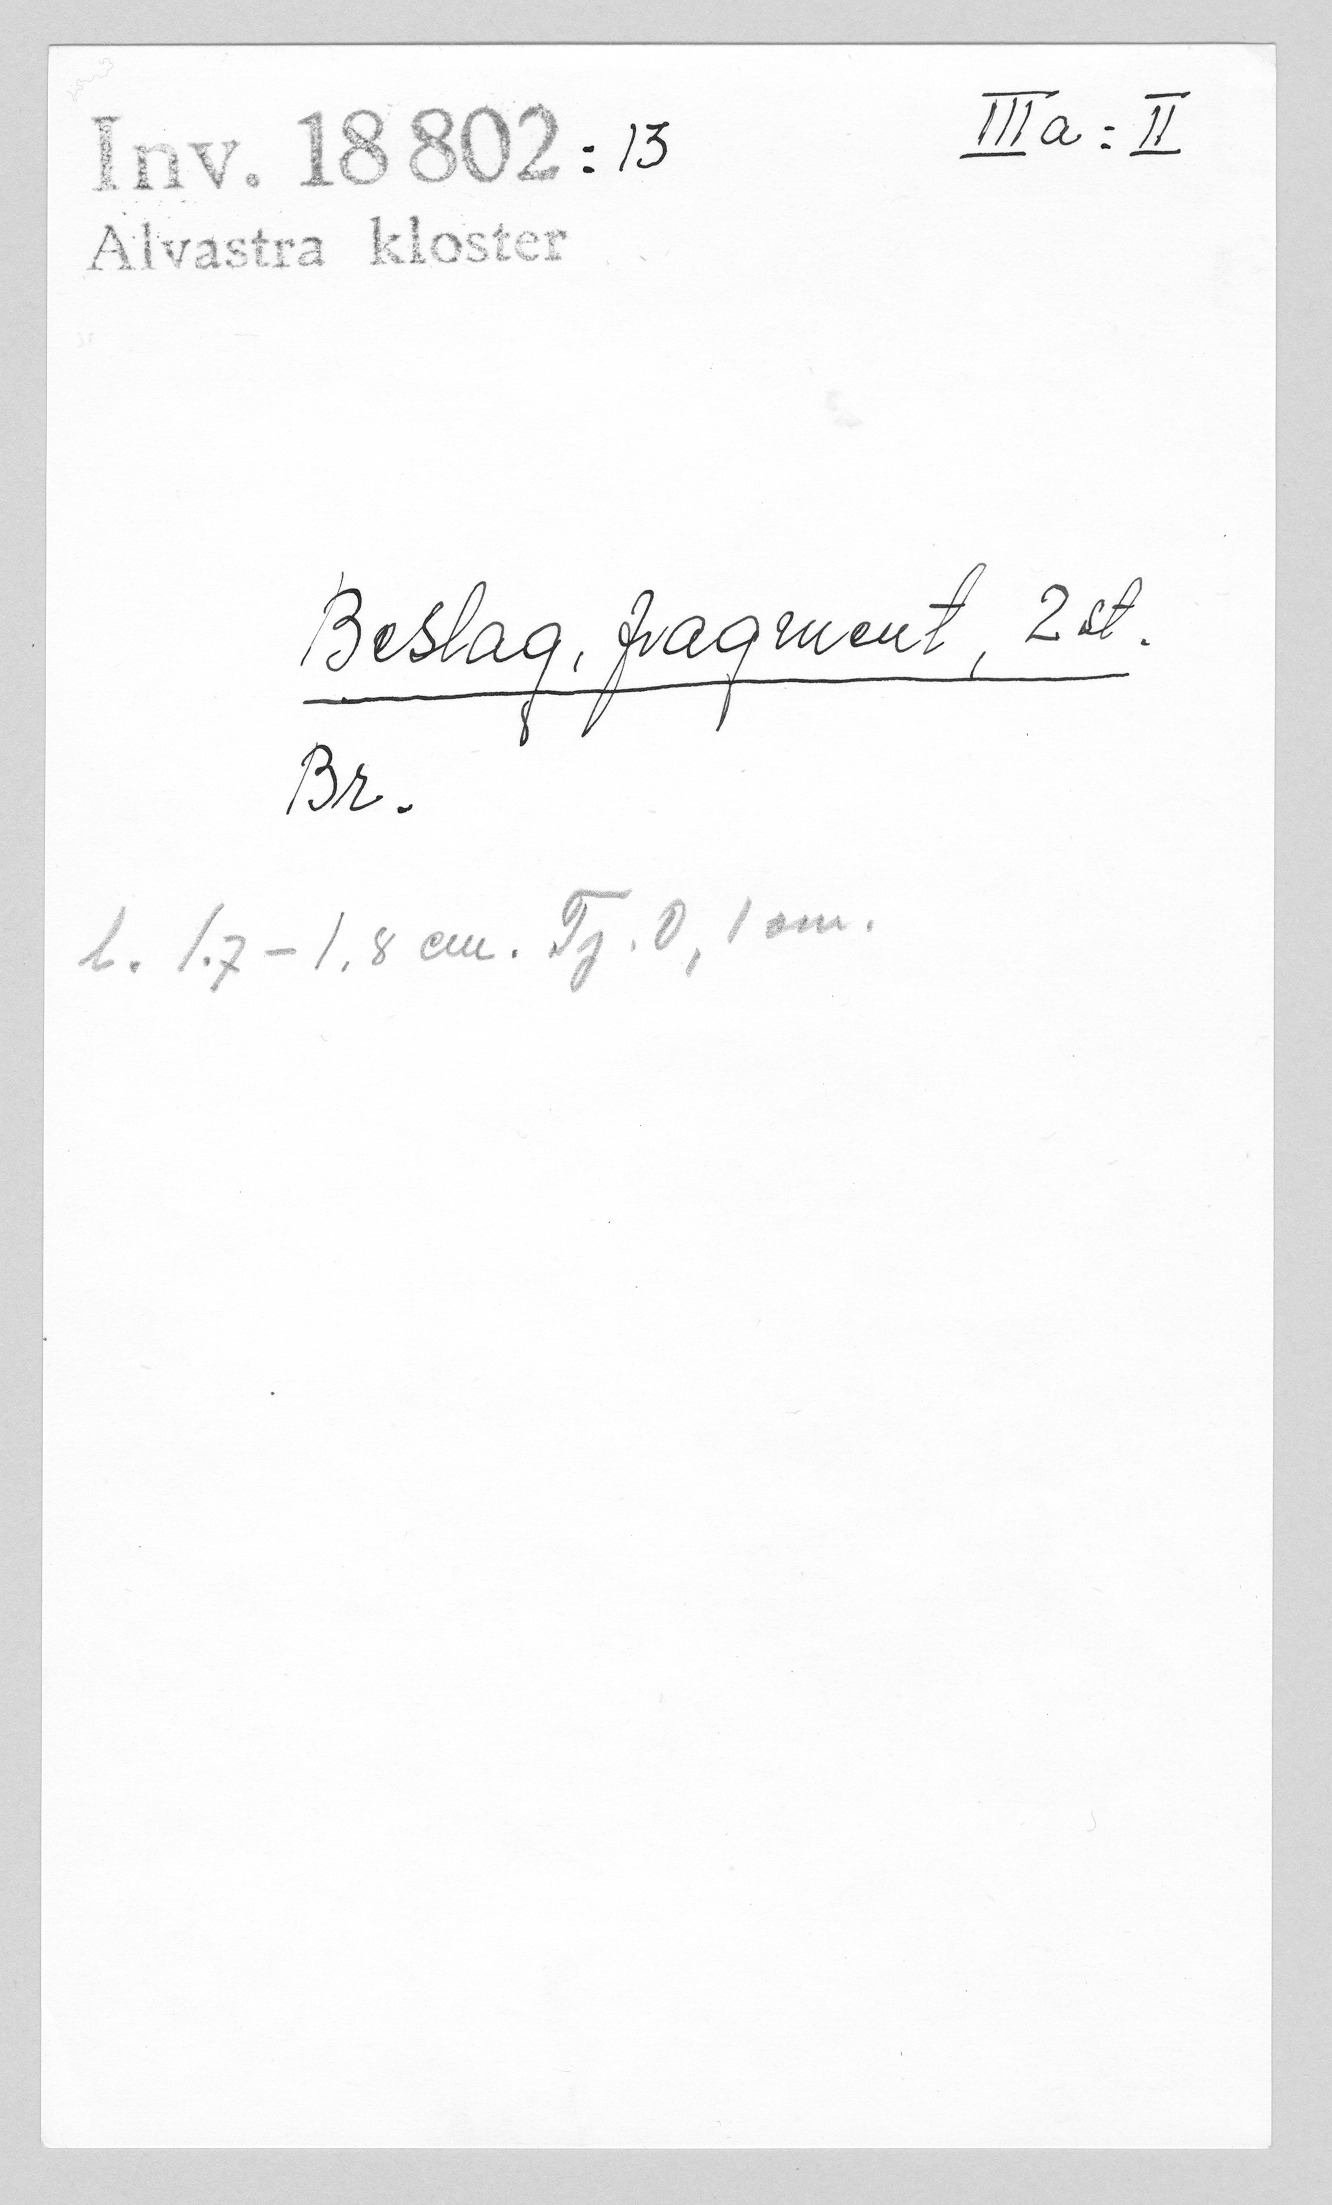 Inv. 18 802 : 13 IIIa : II
Alvastra kloster
Beslag, fragment, 2 st.
Br.
L. 1.7 - 1.8 cm. Tj. 0,1 cm.